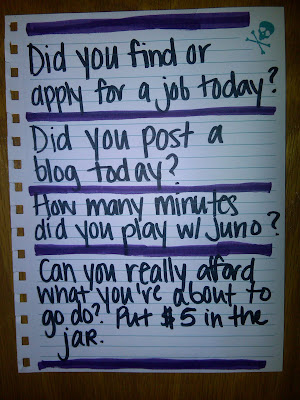 Did you find or
apply for a job today?
Did you post a
blog today?
How many minutes
did you play w/ Juno?
Can you really afford
what you're about to
go do? Put $5 in the
jar.